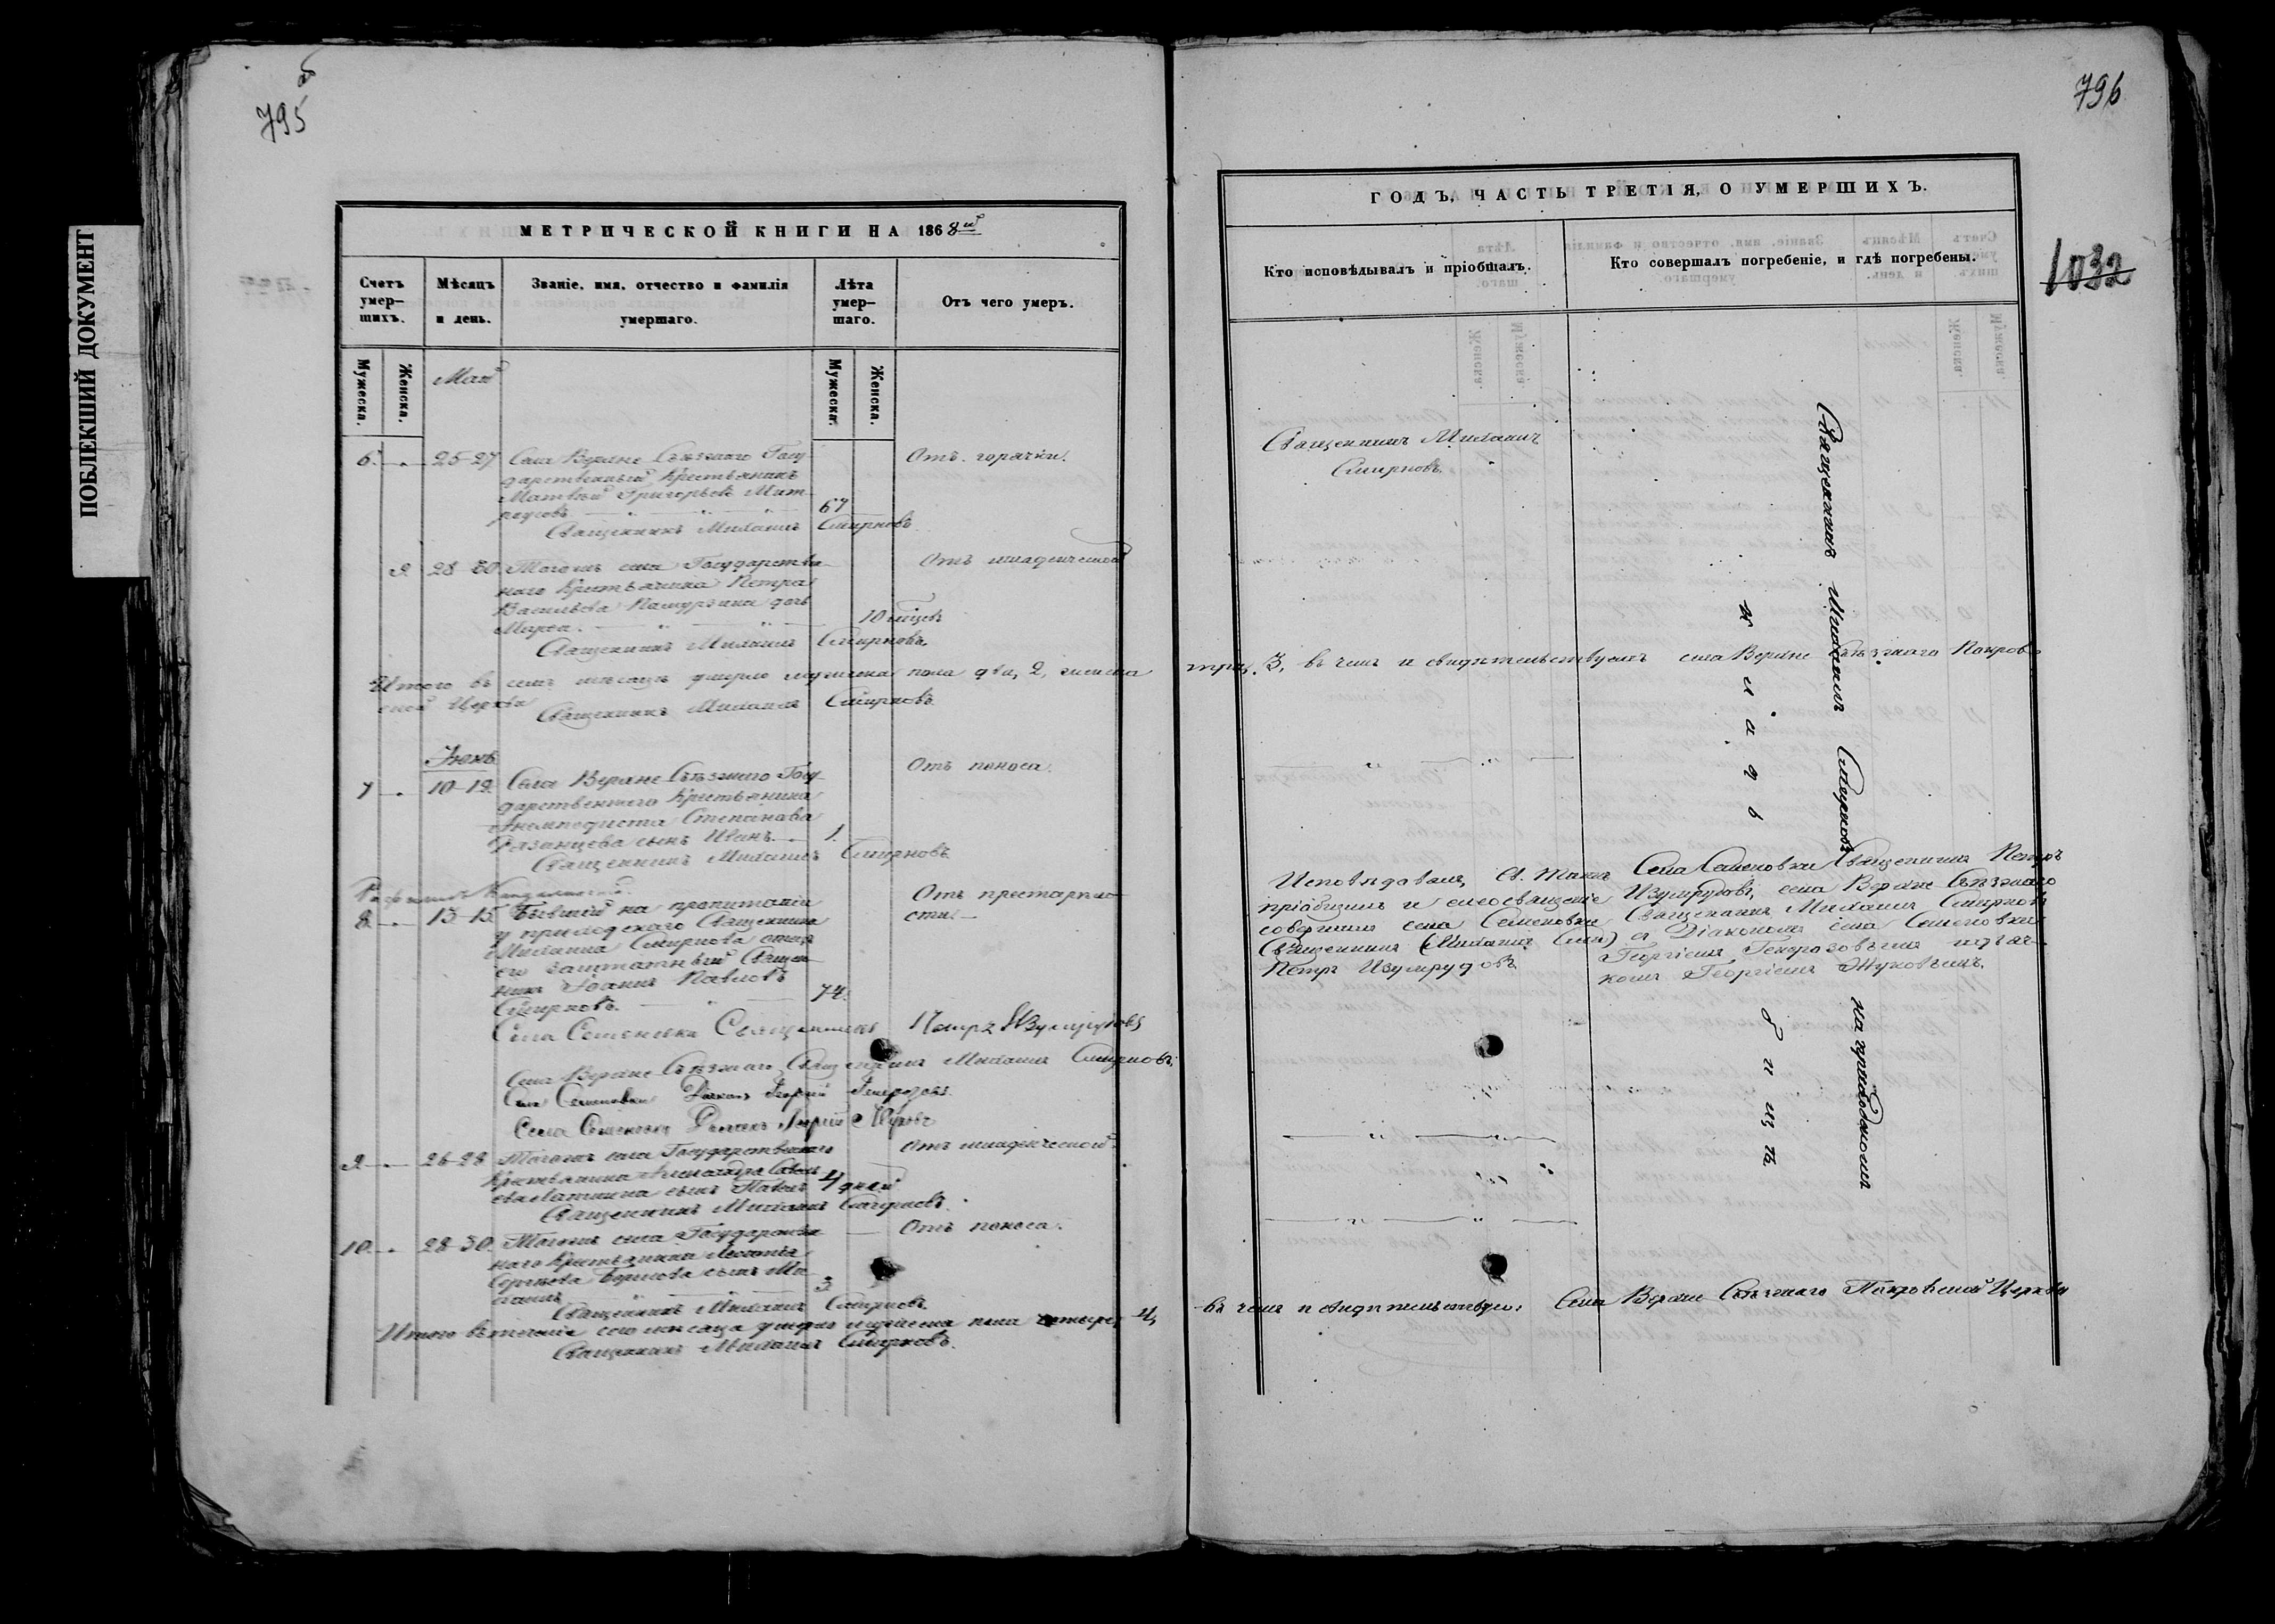 ПОБЛЕКШИЙ ДОКУМЕНТ
795
об
МЕТРИЧЕСКОЙ КНИГИ НА 1868й
Счетъ умер-шихъ.
Мѣсяцъ и день.
Званіе, имя, отчество и фамилія умершаго.
Лѣта умер-шаго.
Отъ чего умеръ.
Мужеска.
Женска.
Мужеска.
Женска.
Май
6. 25-27 Села Верхне Съѣзжаго Госу-
дарственный Крестьянинъ
Матвѣй Григорьевъ
67
Отъ горячки.
Священникъ Михаилъ Смирновъ.
2. 28-30 Тогожъ села Государствен-
наго Крестьянина Петра
Васильева дочь
Марѳа.
10 мѣсяцевъ
Отъ младенческой
Священникъ Михаилъ Смирновъ.
Итого въ семъ мѣсяцѣ умерло мужеска пола два, 2, женска
ской Церкви Священникъ Михаилъ Смирновъ.
Іюнь
7 10-12 Села Верхне Съѣзжаго Госу-
дарственнаго Крестьянина
Анемподиста Степанова
Рязанцева сынъ Иванъ.
1.
Отъ поноса.
Священникъ Михаилъ Смирновъ
8. 13-15 Бывшій на пропитаніи
у приходскаго Священника
Михаила Смирнова отецъ
его заштатный Священ-
никъ Іоаннъ Павловъ
Смирновъ.
74.
Отъ престарѣло-
сти.
Села Семеновки Священникъ Петръ Изумрудовъ
Села Верхне Съѣзжаго Священникъ Михаилъ Смирновъ.
Села Семеновки Діаконъ Георгій
Села Семеновки Георгій Жуковъ
9. 26-28 Тогожъ села Государственнаго
Крестьянина Александра
сынъ Павелъ
4 дней
Отъ младенческой.
Священникъ Михаилъ Смирновъ.
10. 28-30 Тогожъ села Государствен-
наго Крестьянина
Сергѣева сынъ Ми-
хаилъ
3
Отъ поноса.
Священникъ Михаилъ Смирновъ.
Итого въ теченіе сего мѣсяца умерло мужеска пола четыре, 4,
Священникъ Михаилъ Смирновъ.
796
1032
ГОДЪ, ЧАСТЬ ТРЕТІЯ, О УМЕРШИХЪ.
Кто исповѣдывалъ и пріобщалъ.
Кто совершалъ погребеніе, и гдѣ погребены.
Священникъ Михаилъ
Смирновъ.
Священникъ Михаилъ Смирновъ на приходскомъ
кладбищѣ
3, въ чемъ и свидѣтельствуетъ села Верхне Съѣзжаго Покров-
Исповѣдовалъ, Св. Таинъ
пріобщилъ и елеосвященіе
совершилъ села Семеновки
Священникъ
Петръ Изумрудовъ
Села Семеновки Священникъ Петръ
Изумрудовъ, села Верхне Съѣзжаго
Священникъ Михаилъ Смирновъ
съ Діакономъ села Семеновки
Георгіемъ
Георгіемъ Жуковымъ.
въ чемъ и свидѣтельствуетъ Села Верхне Съѣзжаго Покровской Церкви